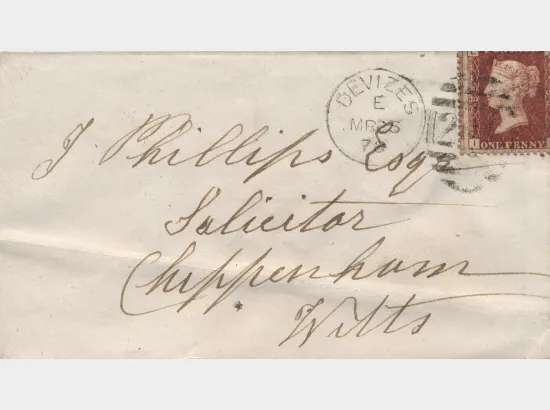 DEVIZES
E
MR 25
7
ONE PENNY
J. Phillips Esqr
Solicitor
Chippenham
Wilts